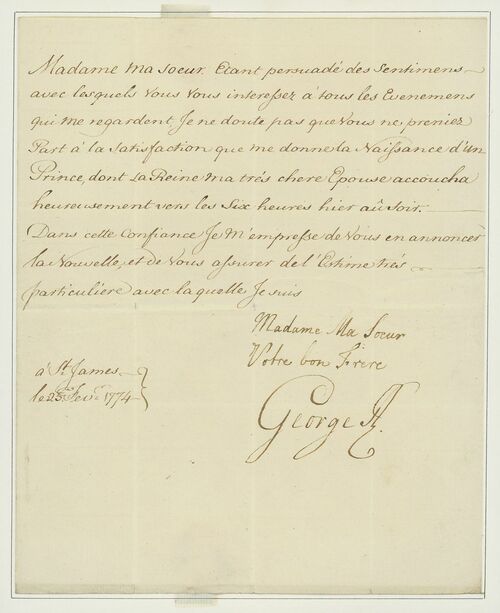 Madame ma Soeur. Etant persuadé des Sentimens
avec lesquels Vous Vous interessez à tous les Evenemens
qui me regardent Je ne doute pas que Vous ne preniez
Part à la Satisfaction que me donne la Naissance d'un
Prince, dont La Reine ma trés chere Epouse accoucha
heureusement vers les Six heures hier aû Soir.
Dans cette Confiance Je M'empresse de Vous en annoncer
la Nouvelle, et de Vous assurer de l'Estime trés
particuliere avec laquelle Je suis
Madame Ma Soeur
Votre bon Frere
à St. James
le 25 Fevr. 1774
George R.